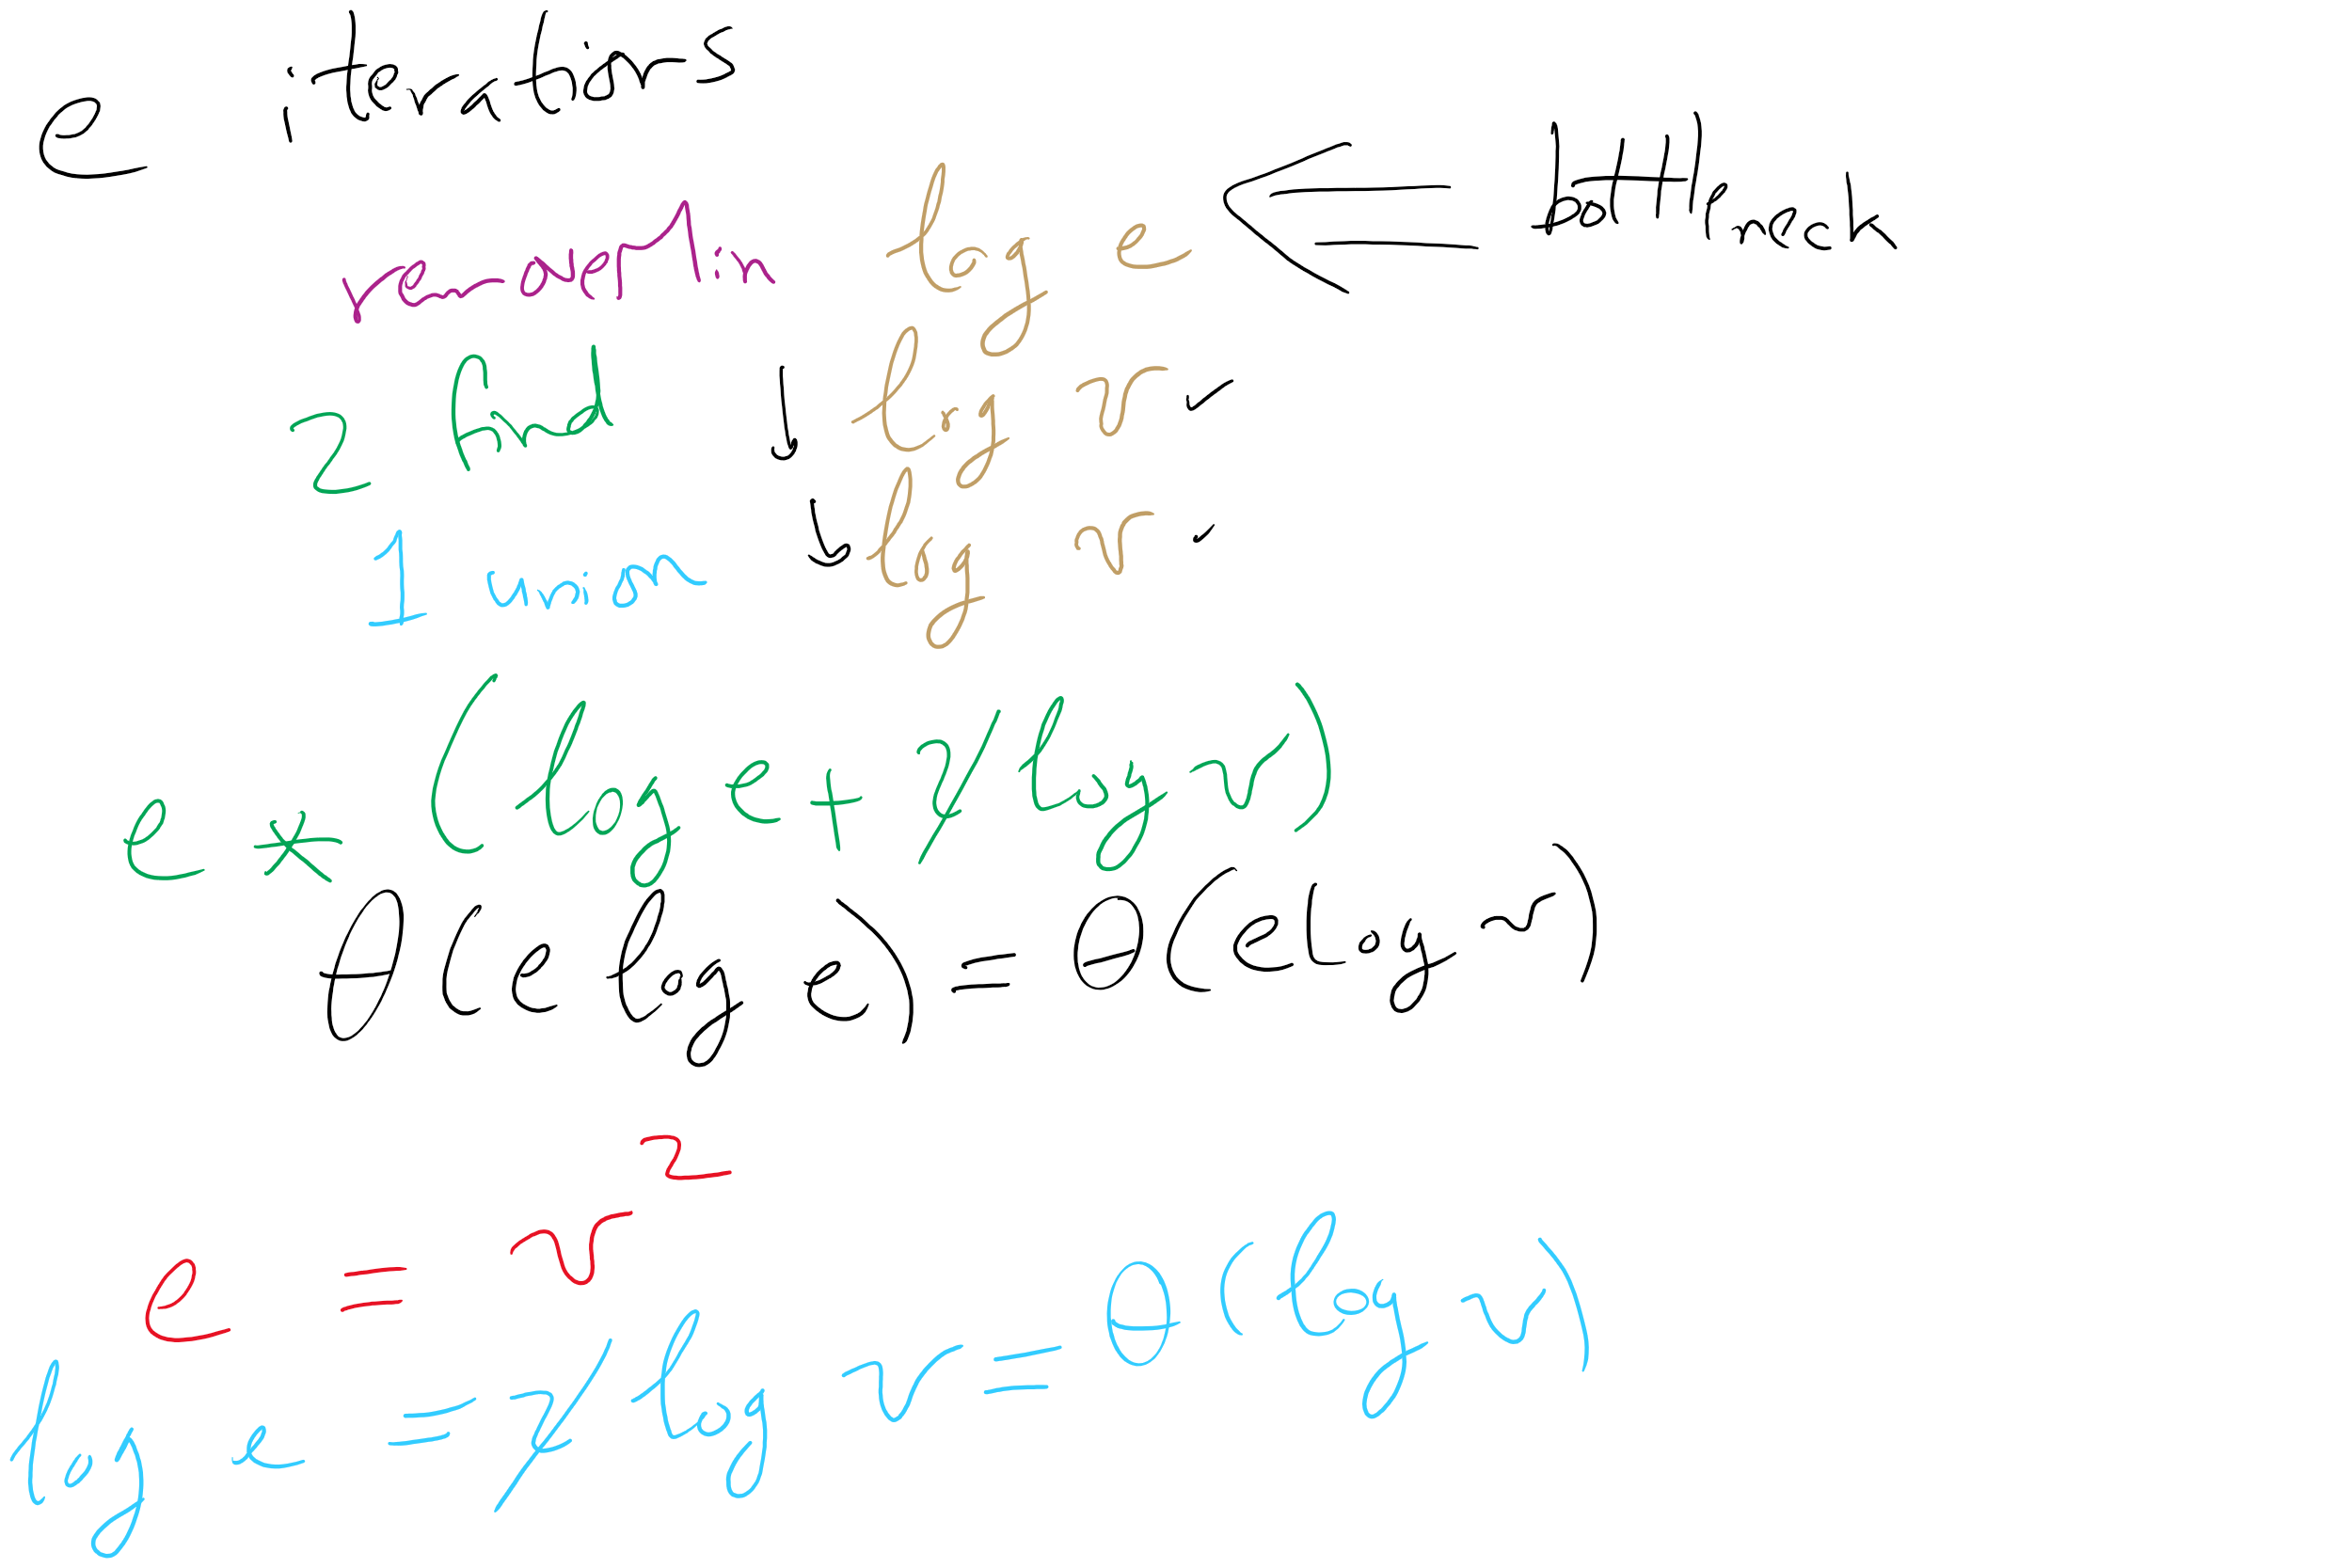 e iterations
removeMin log e ⇐ bottleneck
2 find ↓ log v ✓
1 union ↓ log v ✓
e * (log e + 2 log v)
θ(e log e) = θ(e log v)
e = v²
log e = 2 log v = θ(log v)